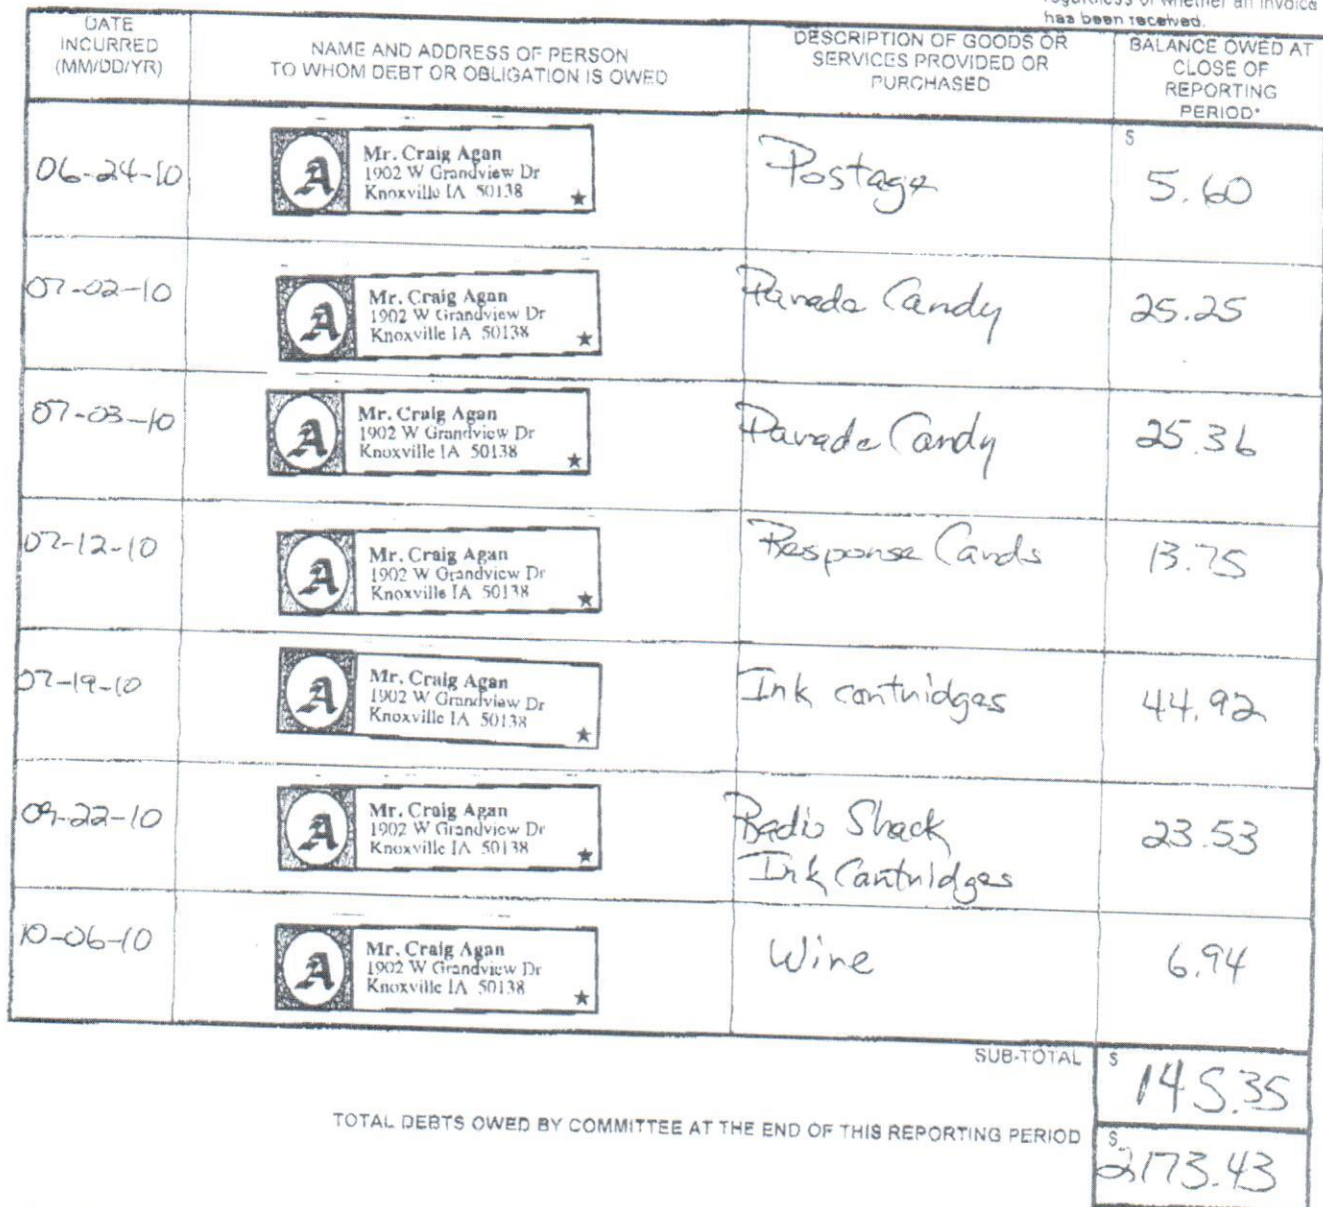 regardless of whether an invoice
has been received.
DATE
INCURRED
(MM/DD/YR)
NAME AND ADDRESS OF PERSON
TO WHOM DEBT OR OBLIGATION IS OWED
DESCRIPTION OF GOODS OR
SERVICES PROVIDED OR
PURCHASED
BALANCE OWED AT
CLOSE OF
REPORTING
PERIOD*
06-24-10
A
Mr. Craig Agan
1902 W Grandview Dr
Knoxville IA 50138
Postage
$
5.60
07-02-10
A
Mr. Craig Agan
1902 W Grandview Dr
Knoxville IA 50138
Parade Candy
25.25
07-03-10
A
Mr. Craig Agan
1902 W Grandview Dr
Knoxville IA 50138
Parade Candy
25.36
07-12-10
A
Mr. Craig Agan
1902 W Grandview Dr
Knoxville IA 50138
Response Cards
13.75
07-19-10
A
Mr. Craig Agan
1902 W Grandview Dr
Knoxville IA 50138
Ink cartridges
44.92
09-22-10
A
Mr. Craig Agan
1902 W Grandview Dr
Knoxville IA 50138
Radio Shack
Ink Cartridges
23.53
10-06-10
A
Mr. Craig Agan
1902 W Grandview Dr
Knoxville IA 50138
Wine
6.94
SUB-TOTAL
$
145.35
TOTAL DEBTS OWED BY COMMITTEE AT THE END OF THIS REPORTING PERIOD
$
2173.43